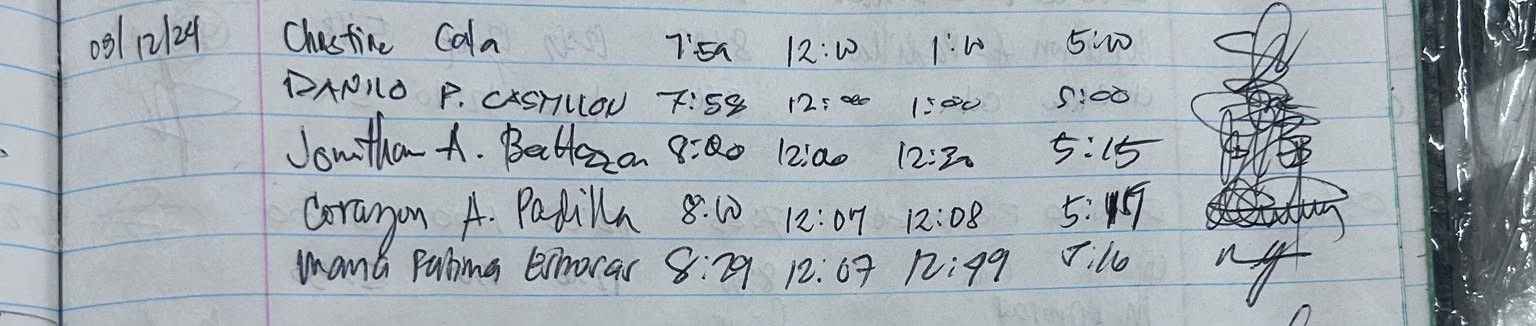 09/12/24 Christine Cala 7:59 12:00 1:00 5:00
DANILO P. CASTILLON 7:58 12:00 1:00 5:00
Jonathan A. 8:00 12:00 12:30 5:15
Corazon A. Padilla 8:00 12:07 12:08 5:19
Maria Fatima 8:29 12:07 12:49 5:16